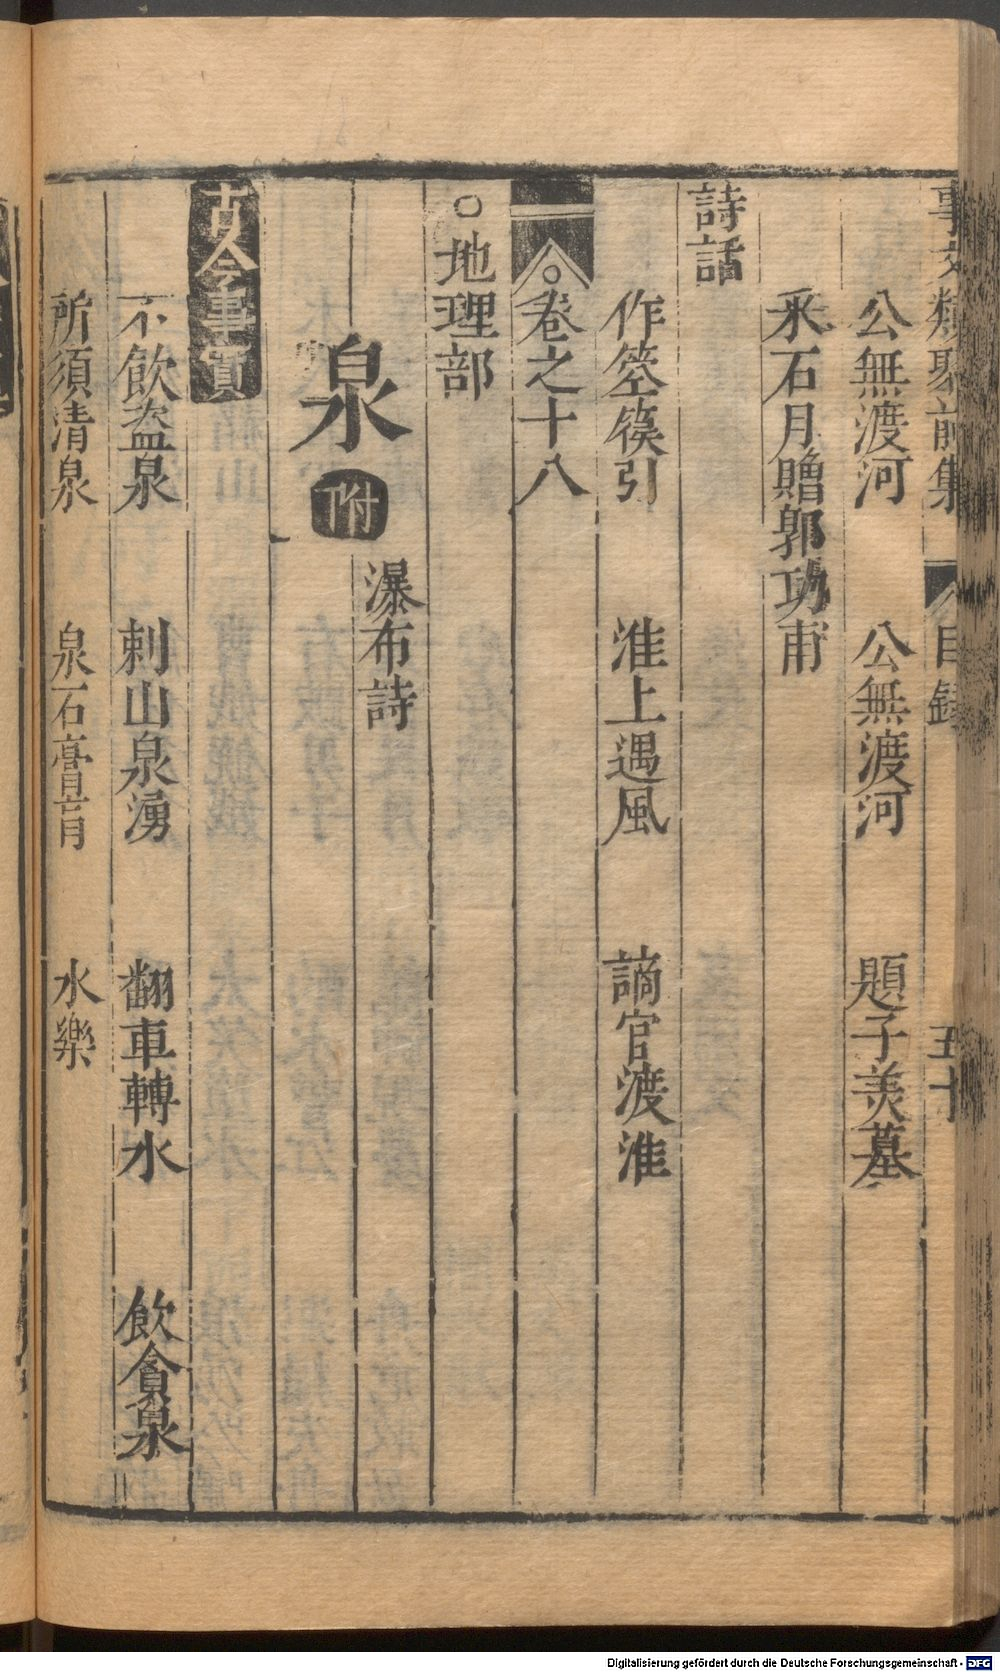 事文類聚前集 目錄 五十
公無渡河 公無渡河 題子美墓
采石月贈郭功甫
詩話
作箜篌引 淮上遇風 謫官渡淮
○卷之十八
○地理部
泉 附 瀑布詩
古今事實
不飲盜泉 刺山泉湧 翻車轉水 飲貪泉
所須清泉 泉石膏肓 水樂
Digitalisierung gefördert durch die Deutsche Forschungsgemeinschaft - DFG